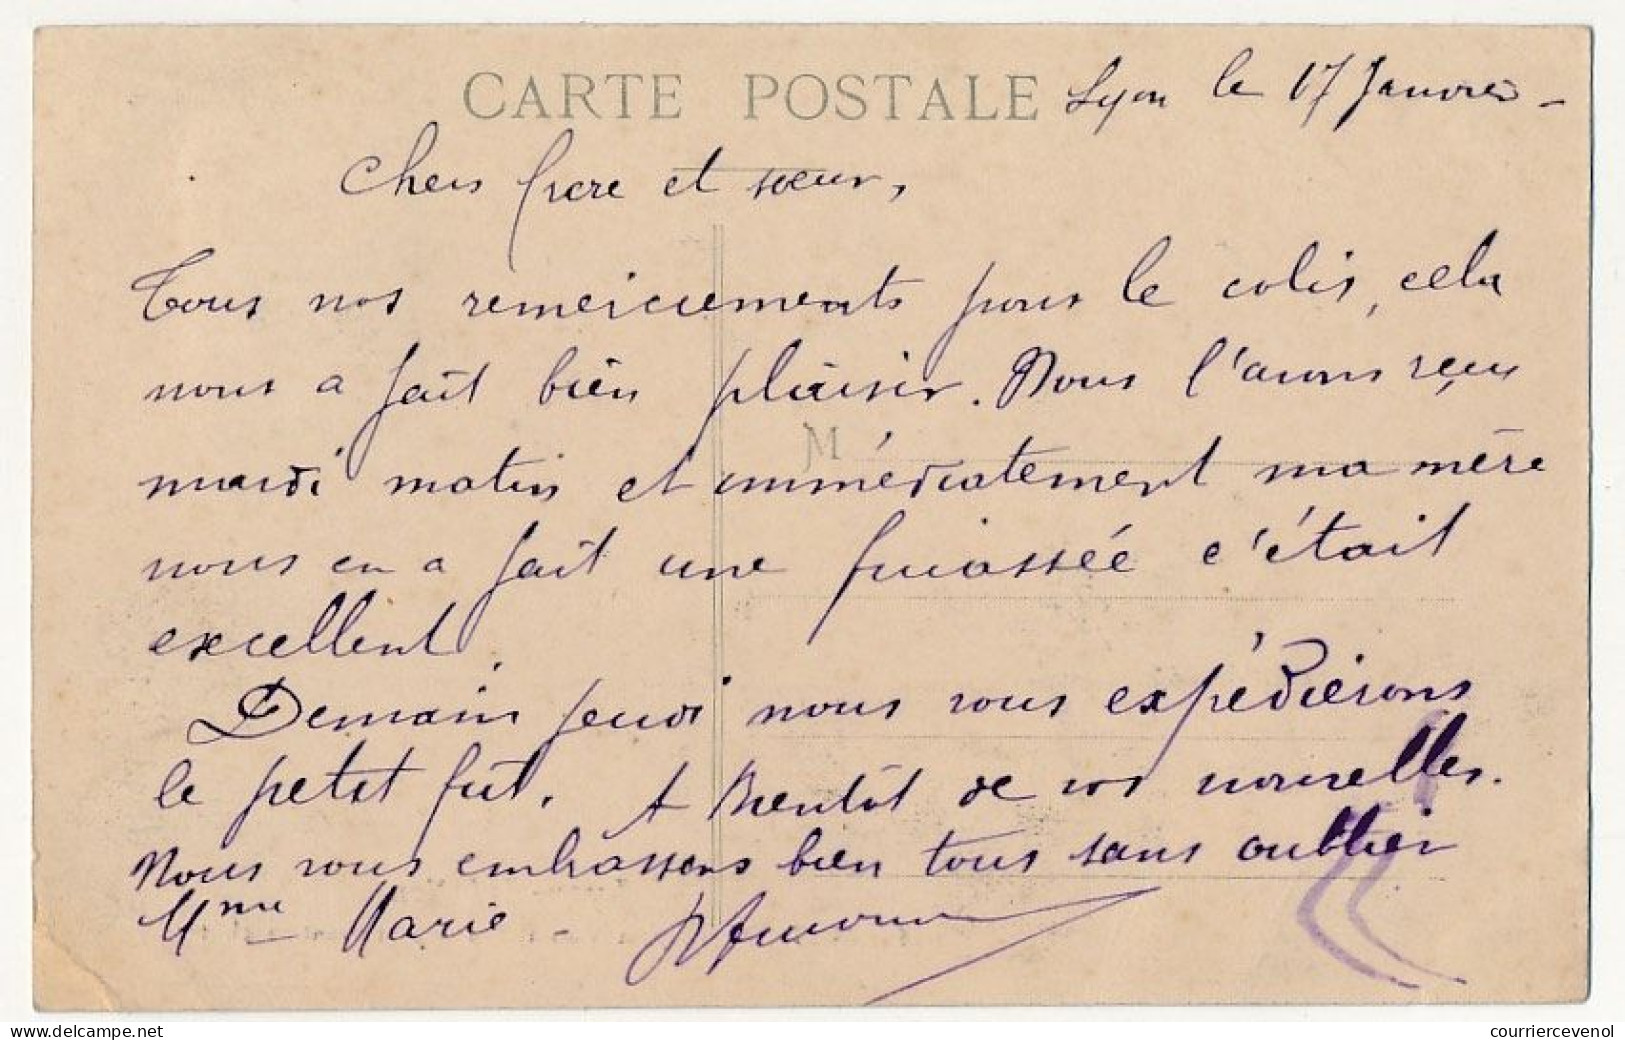 CARTE POSTALE
Lyon le 17 Janvier -
Chers frere et sœur,
Tous nos remerciements pour le colis, cela
nous a fait bien plaisir. Nous l'avons reçu
M
mardi matin et immédiatement ma mère
nous en a fait une fricassée c'était
excellent.
Demain jeudi nous vous expédierons
le petit fût. A Bientôt de vos nouvelles.
Nous vous embrassons bien tous sans oublier
Mme Marie -
www.delcampe.net
courriercevenol